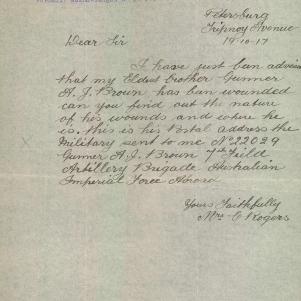 Petersburg
Tripney Avenue
19-10-17
Dear Sir
I have just ban advise
that my Eldest brother Gunner
A. J. Brown has ban wounded
can you find out the nature
of his wounds and where he
is. this is his Postal address the
Military sent to me No 22029
Gunner A. J. Brown 7th Field
Artillery Brigade Australian
Imperial Force Abroad
Yours Faithfully
Mrs C Rogers